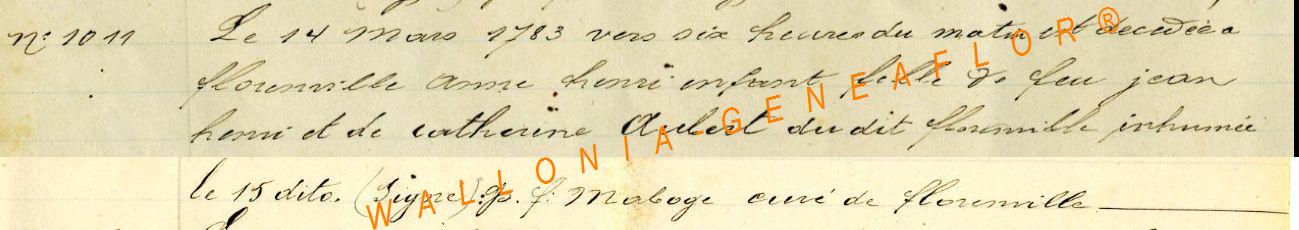 N: 1011 Le 14 Mars 1783 vers six heures du matin est decedée a
florenville anne henri enfant fille de feu jean
henri et de catherine Aubert du dit florenville inhumée
le 15 dito. (Signé) : p. f. Maboge curé de florenville
WALLONIA-GENEAFLOR®